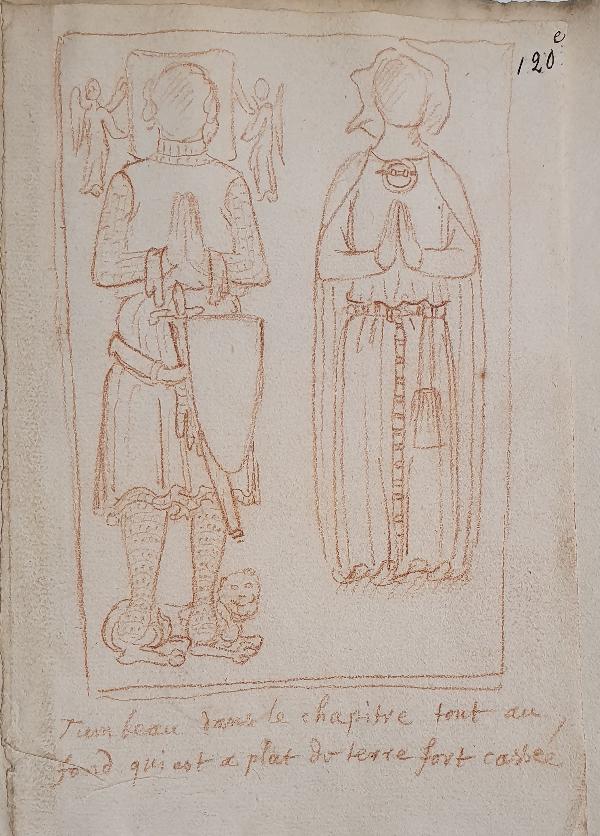 120
e
Tumbeau dans le chapitre tout au
fond qui est a plat de terre fort cassee